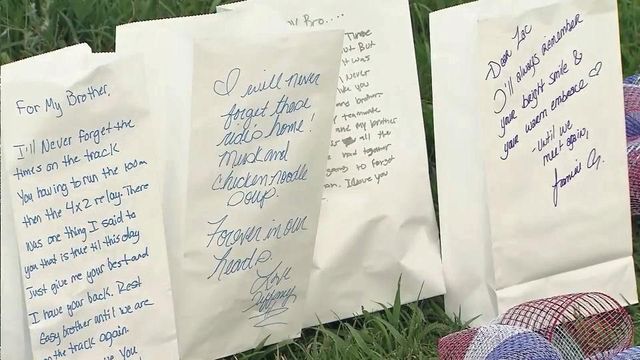 For My Brother,
I'll Never forget the
times on the track
You having to run the 100m
then the 4x2 relay. There
was one thing I said to
you that is true til this day
Just give me your best and
I have your back. Rest
Easy brother until we are
on the track again.
You
I will never
forget those
rides home!
Music and
chicken noodle
soup.
Forever in our
heads.
Love
Tiffany
Bro....
But
was
Never
like you
and brother.
teammate
are my brother
all the
had together
going to forget
I love you
Dear Loc
I'll always remember
your bright smile &
your warm embrace
- until we
meet again,